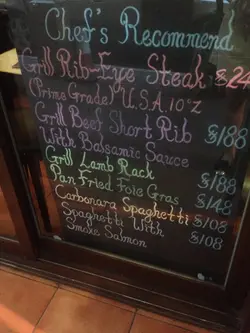 Chef's Recommend
Grill Rib-Eye Steak $24
(Prime Grade) U.S.A 10°Z
Grill Beef Short Rib $188
With Balsamic Sauce
Grill Lamb Rack $188
Pan Fried Foie Gras $148
Carbonara Spaghetti $108
Spaghetti With $108
Smoke Salmon